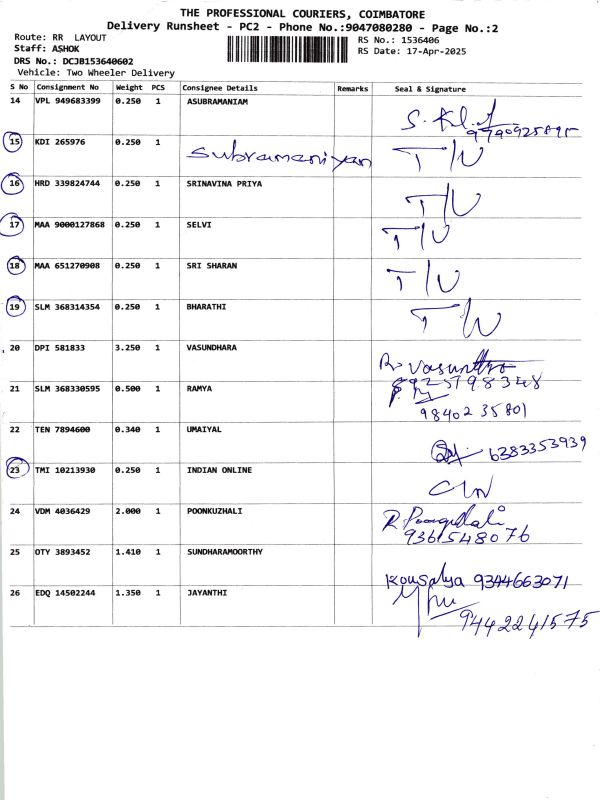 THE PROFESSIONAL COURIERS, COIMBATORE
Delivery Runsheet - PC2 - Phone No.:9047080280 - Page No.:2
Route: RR LAYOUT
RS No.: 1536406
Staff: ASHOK
RS Date: 17-Apr-2025
DRS No.: DCJB153640602
Vehicle: Two Wheeler Delivery
S No Consignment No Weight PCS Consignee Details Remarks Seal & Signature
14 VPL 949683399 0.250 1 ASUBRAMANIAM
15 KDI 265976 0.250 1 Subramaniyan T/U
16 HRD 339824744 0.250 1 SRINAVINA PRIYA T/U
17 MAA 9000127868 0.250 1 SELVI T/U
18 MAA 651270908 0.250 1 SRI SHARAN T/U
19 SLM 368314354 0.250 1 BHARATHI
20 DPI 581833 3.250 1 VASUNDHARA
8925798348
21 SLM 368330595 0.500 1 RAMYA
98402 35801
22 TEN 7894600 0.340 1 UMAIYAL 6383353939
23 TMI 10213930 0.250 1 INDIAN ONLINE
24 VDM 4036429 2.000 1 POONKUZHALI
9361548076
25 OTY 3893452 1.410 1 SUNDHARAMOORTHY
Kousalya 9344663071
26 EDQ 14502244 1.350 1 JAYANTHI
9442241575